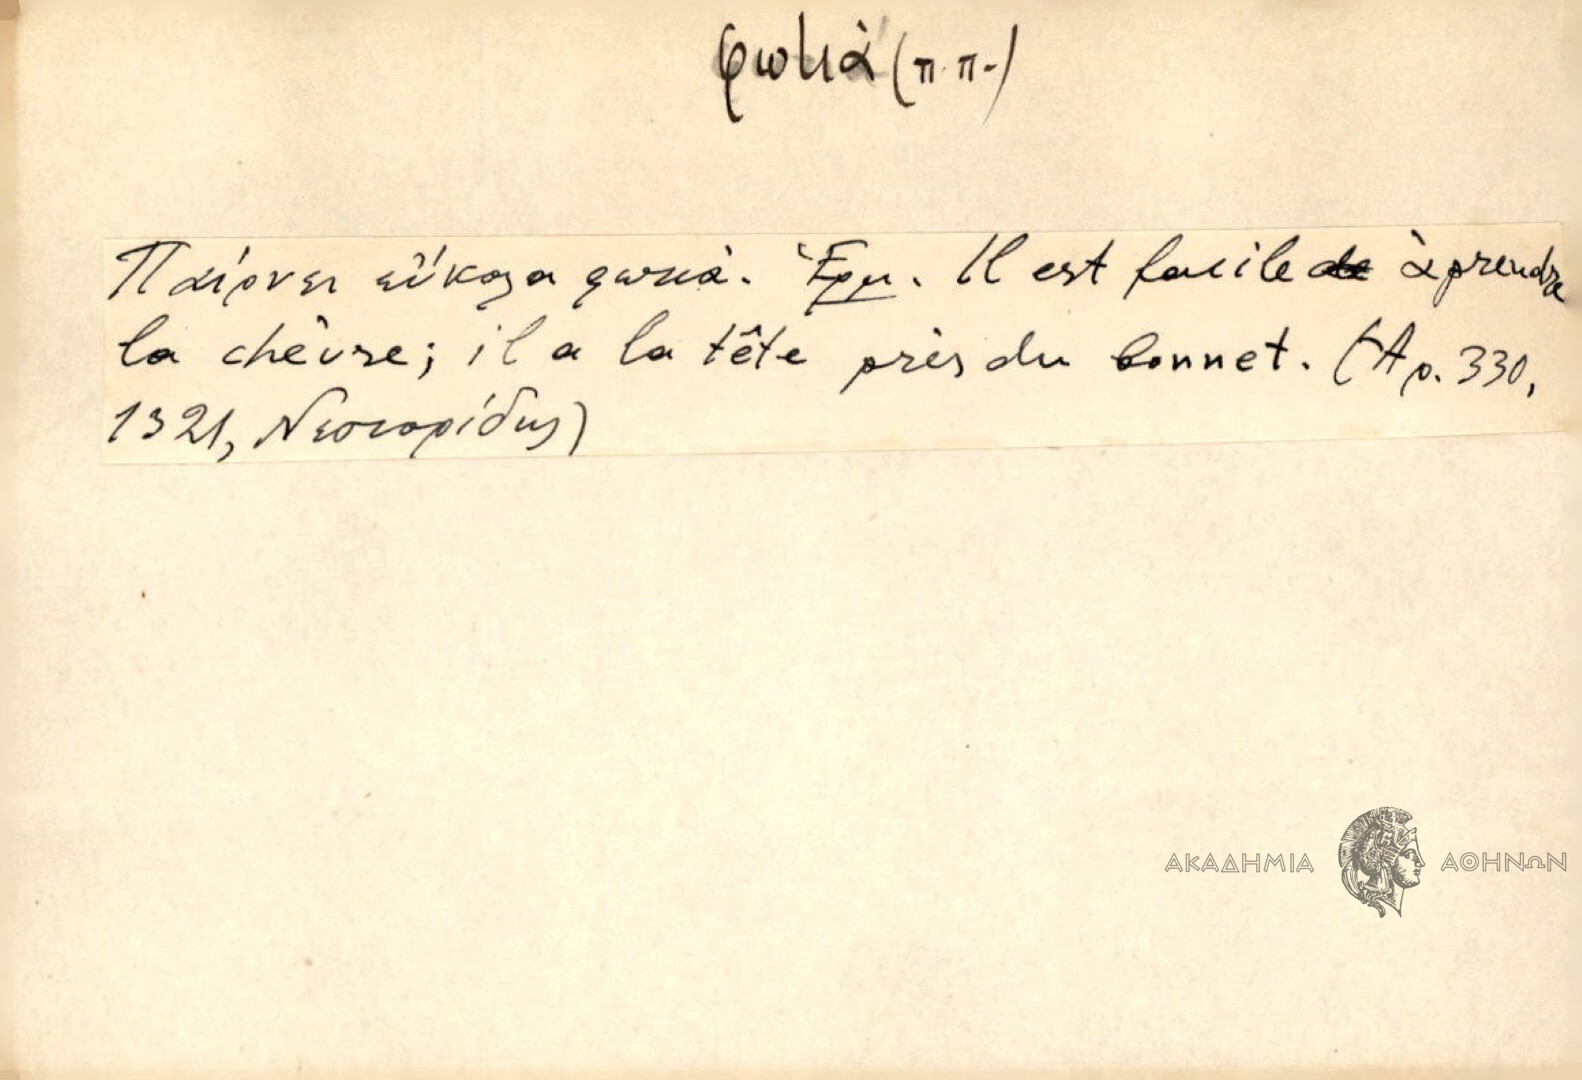 φωτιὰ (π.π.)
Παίρνει εὔκολα φωτιά. Ἑρμ. Il est facile à prendre
la chèvre; il a la tête près du bonnet. (Ἀρ. 330,
1321, Νεστορίδης)
ΑΚΑΔΗΜΙΑ ΑΘΗΝΩΝ